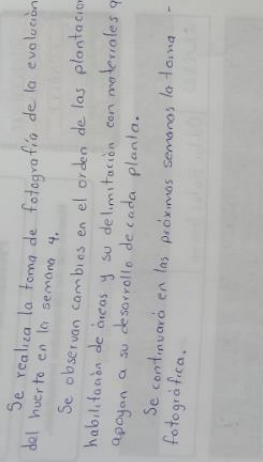 Se realiza la toma de fotografía de la evolución
del huerto en la semana 4.
Se observan cambios en el orden de las plantacion
habilitación de áreas y su delimitación con materiales q
apoyan a su desarrollo de cada planta.
Se continuará en las próximas semanas la toma -
fotográfica.